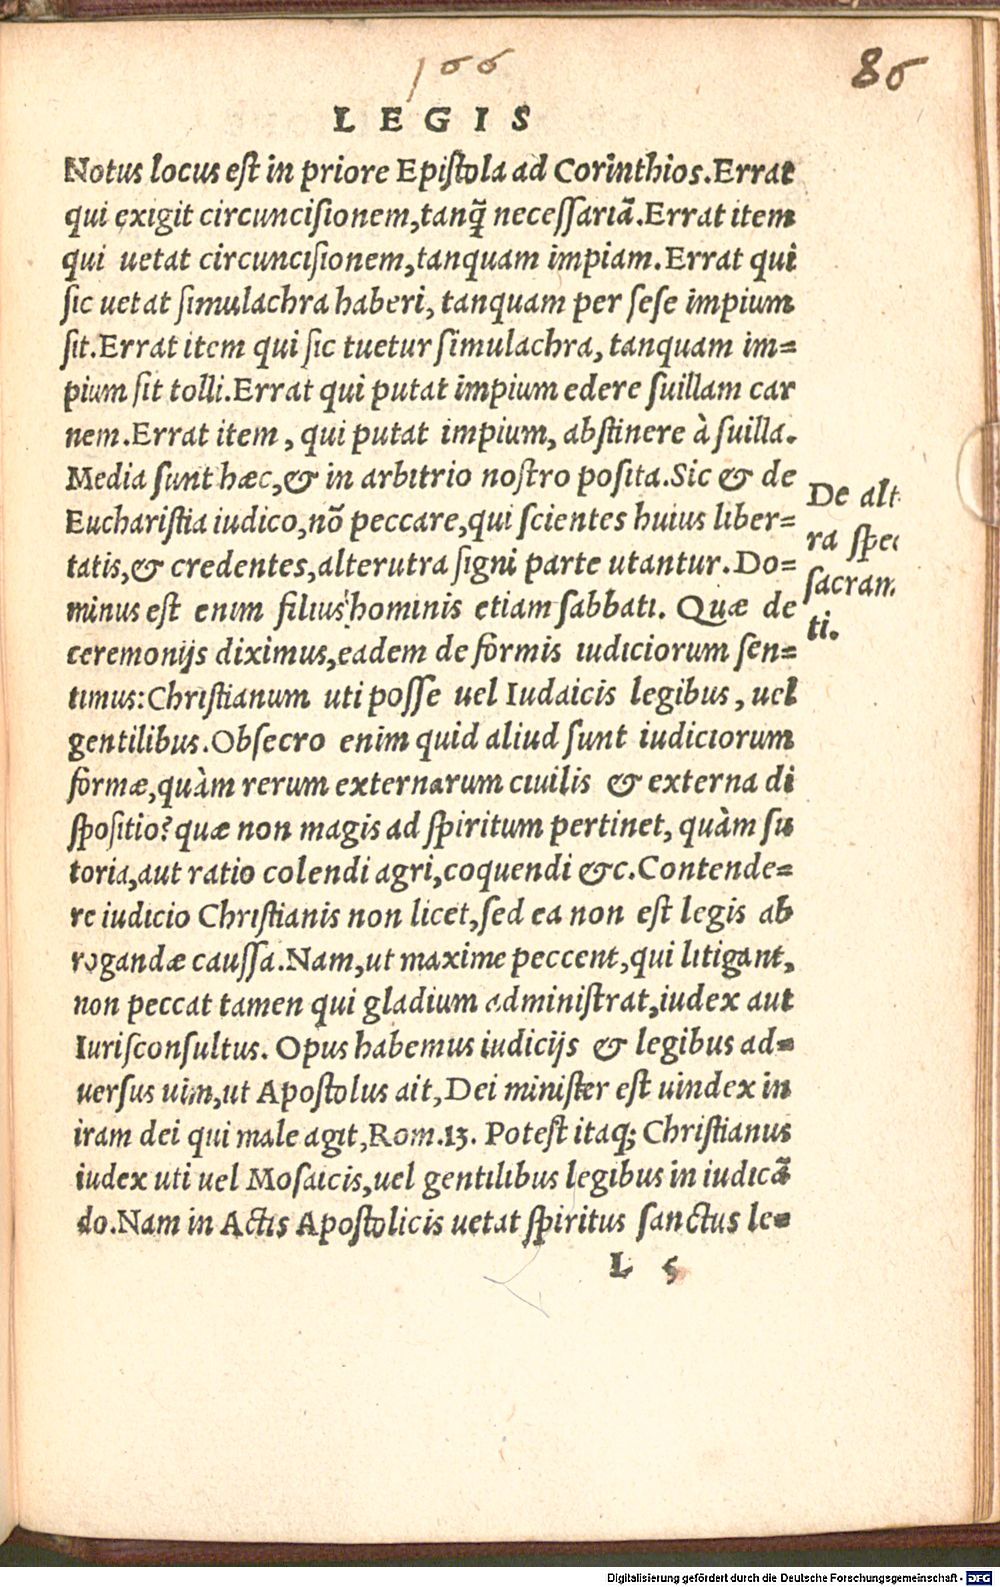 166
86
LEGIS
Notus locus est in priore Epistola ad Corinthios. Errat
qui exigit circuncisionem, tanq̃ necessariã. Errat item
qui uetat circuncisionem, tanquam impiam. Errat qui
sic uetat simulachra haberi, tanquam per sese impium
sit. Errat item qui sic tuetur simulachra, tanquam im=
pium sit tolli. Errat qui putat impium edere suillam car
nem. Errat item, qui putat impium, abstinere à suilla.
Media sunt hæc, & in arbitrio nostro posita. Sic & de
Eucharistia iudico, nõ peccare, qui scientes huius liber=
tatis, & credentes, alterutra signi parte utantur. Do=
minus est enim filius hominis etiam sabbati. Quæ de
ceremonijs diximus, eadem de formis iudiciorum sen=
timus: Christianum uti posse uel Iudaicis legibus, uel
gentilibus. Obsecro enim quid aliud sunt iudiciorum
formæ, quàm rerum externarum ciuilis & externa di
spositio? quæ non magis ad spiritum pertinet, quàm su
toria, aut ratio colendi agri, coquendi &c. Contende=
re iudicio Christianis non licet, sed ea non est legis ab
rogandæ caussa. Nam, ut maxime peccent, qui litigant,
non peccat tamen qui gladium administrat, iudex aut
Iurisconsultus. Opus habemus iudicijs & legibus ad=
uersus uim, ut Apostolus ait, Dei minister est uindex in
iram dei qui male agit, Rom. 13. Potest itaq; Christianus
iudex uti uel Mosaicis, uel gentilibus legibus in iudicã
do. Nam in Actis Apostolicis uetat spiritus sanctus le=
De alt
ra spec
sacram
ti.
L 5
Digitalisierung gefördert durch die Deutsche Forschungsgemeinschaft - DFG